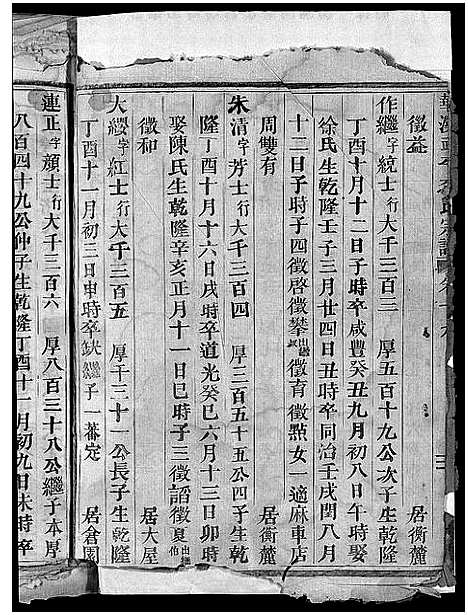 徵益　　居衡麓
作繼字統士行大千三百三　厚五百十九公次子生乾隆
丁酉十月十二日子時卒咸豐癸丑九月初八日午時娶
徐氏生乾隆壬子三月廿四日丑時卒同治壬戌閏八月
十二日子時子四徵啓徵攀出繼徵育徵㸃女一適麻車店
周雙有　　居衡麓
朱清字芳士行大千三百四　厚三百五十五公四子生乾
隆丁酉十月十六日戌時卒道光癸巳六月十三日卯時
娶陳氏生乾隆辛亥正月十一日巳時子三徵諧徵夏出繼伯
徵和　　居大屋
大纓字紅士行大千三百五　厚千三十一公長子生乾隆
丁酉十一月初三日申時卒缺繼子一蕃定　　居倉園
連正字顔士行大千三百六　厚八百三十八公繼子本厚
八百四十九公仲子生乾隆丁酉十一月初九日未時卒